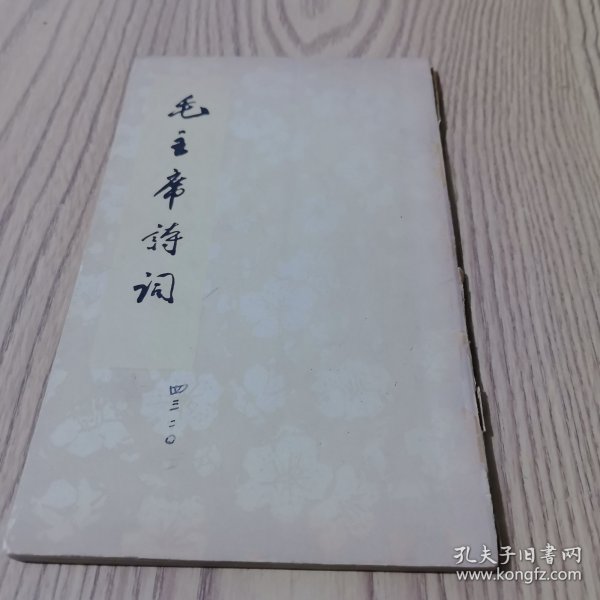 毛主席詩词
四三二〇
孔夫子旧書网
www.kongfz.com